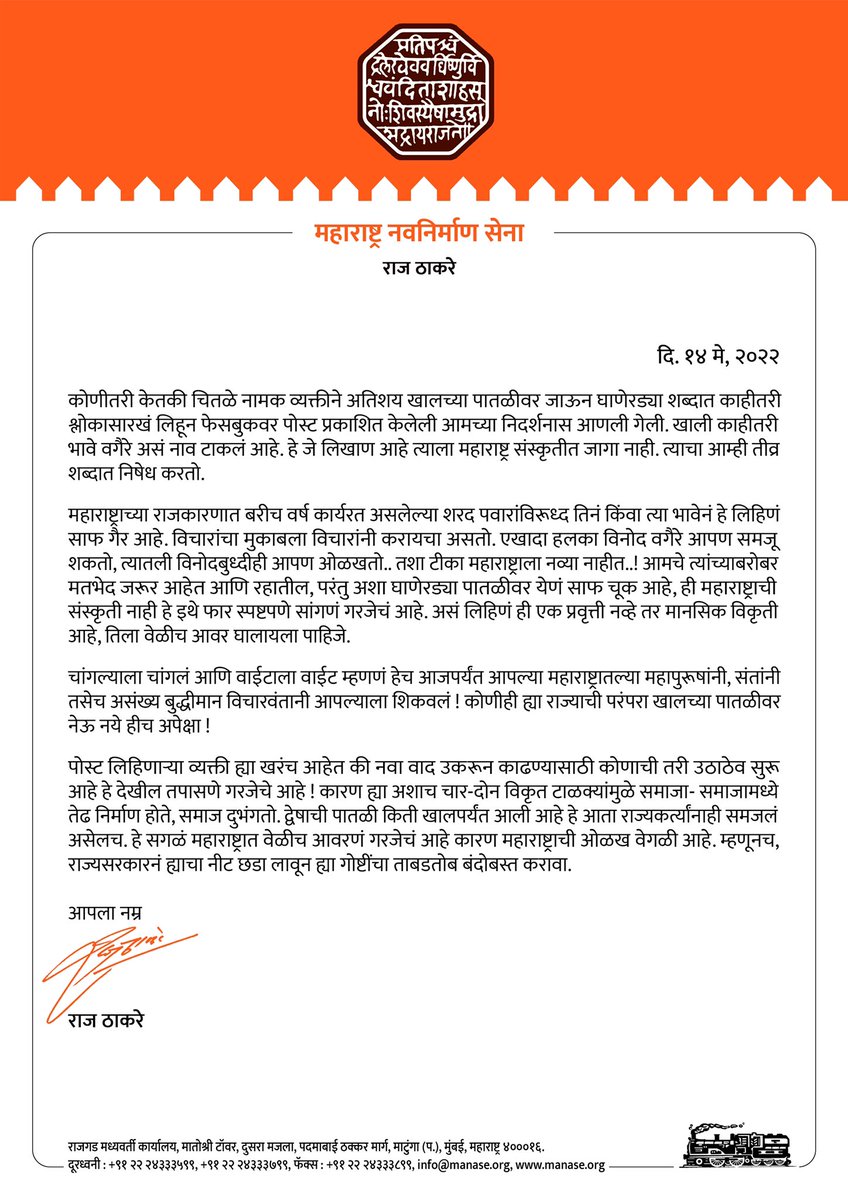 प्रतिपश्चं
द्रलेखेवव र्धिष्णुर्वि
श्ववंदिताशाहसू
नोःशिवस्यैषामुद्रा
भद्रायराजते
महाराष्ट्र नवनिर्माण सेना
राज ठाकरे
दि. १४ मे, २०२२
कोणीतरी केतकी चितळे नामक व्यक्तीने अतिशय खालच्या पातळीवर जाऊन घाणेरड्या शब्दात काहीतरी
श्लोकासारखं लिहून फेसबुकवर पोस्ट प्रकाशित केलेली आमच्या निदर्शनास आणली गेली. खाली काहीतरी
भावे वगैरे असं नाव टाकलं आहे. हे जे लिखाण आहे त्याला महाराष्ट्र संस्कृतीत जागा नाही. त्याचा आम्ही तीव्र
शब्दात निषेध करतो.
महाराष्ट्राच्या राजकारणात बरीच वर्ष कार्यरत असलेल्या शरद पवारांविरूध्द तिनं किंवा त्या भावेनं हे लिहिणं
साफ गैर आहे. विचारांचा मुकाबला विचारांनी करायचा असतो. एखादा हलका विनोद वगैरे आपण समजू
शकतो, त्यातली विनोदबुध्दीही आपण ओळखतो.. तशा टीका महाराष्ट्राला नव्या नाहीत..! आमचे त्यांच्याबरोबर
मतभेद जरूर आहेत आणि रहातील, परंतु अशा घाणेरड्या पातळीवर येणं साफ चूक आहे, ही महाराष्ट्राची
संस्कृती नाही हे इथे फार स्पष्टपणे सांगणं गरजेचं आहे. असं लिहिणं ही एक प्रवृत्ती नव्हे तर मानसिक विकृती
आहे, तिला वेळीच आवर घालायला पाहिजे.
चांगल्याला चांगलं आणि वाईटाला वाईट म्हणणं हेच आजपर्यंत आपल्या महाराष्ट्रातल्या महापुरूषांनी, संतांनी
तसेच असंख्य बुद्धीमान विचारवंतानी आपल्याला शिकवलं ! कोणीही ह्या राज्याची परंपरा खालच्या पातळीवर
नेऊ नये हीच अपेक्षा !
पोस्ट लिहिणाऱ्या व्यक्ती ह्या खरंच आहेत की नवा वाद उकरून काढण्यासाठी कोणाची तरी उठाठेव सुरू
आहे हे देखील तपासणे गरजेचे आहे ! कारण ह्या अशाच चार-दोन विकृत टाळक्यांमुळे समाजा- समाजामध्ये
तेढ निर्माण होते, समाज दुभंगतो. द्वेषाची पातळी किती खालपर्यंत आली आहे हे आता राज्यकर्त्यांनाही समजलं
असेलच. हे सगळं महाराष्ट्रात वेळीच आवरणं गरजेचं आहे कारण महाराष्ट्राची ओळख वेगळी आहे. म्हणूनच,
राज्यसरकारनं ह्याचा नीट छडा लावून ह्या गोष्टींचा ताबडतोब बंदोबस्त करावा.
आपला नम्र
राज ठाकरे
राजगड मध्यवर्ती कार्यालय, मातोश्री टॉवर, दुसरा मजला, पदमाबाई ठक्कर मार्ग, माटुंगा (प.), मुंबई, महाराष्ट्र ४०००१६.
दूरध्वनी : +९१ २२ २४३३३५९९, +९१ २२ २४३३३७९९, फॅक्स : +९१ २२ २४३३३८९९, info@manase.org, www.manase.org